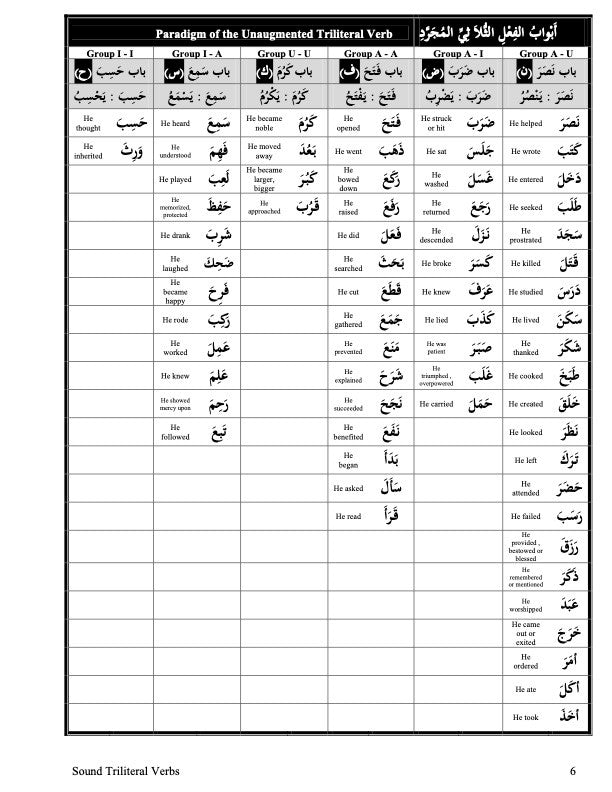 Paradigm of the Unaugmented Triliteral Verb أَبْوَابُ الفِعْلِ الثُّلاَثِيِّ المُجَرَّدِ
Group I - I Group I - A Group U - U Group A - A Group A - I Group A - U
باب حَسِبَ (ح) باب سَمِعَ (س) باب كَرُمَ (ك) باب فَتَحَ (ف) باب ضَرَبَ (ض) باب نَصَرَ (ن)
حَسِبَ : يَحْسِبُ سَمِعَ : يَسْمَعُ كَرُمَ : يَكْرُمُ فَتَحَ : يَفْتَحُ ضَرَبَ : يَضْرِبُ نَصَرَ : يَنْصُرُ
He thought حَسِبَ He heard سَمِعَ He became noble كَرُمَ He opened فَتَحَ He struck or hit ضَرَبَ He helped نَصَرَ
He inherited وَرِثَ He understood فَهِمَ He moved away بَعُدَ He went ذَهَبَ He sat جَلَسَ He wrote كَتَبَ
He played لَعِبَ He became larger, bigger كَبُرَ He bowed down رَكَعَ He washed غَسَلَ He entered دَخَلَ
He memorized, protected حَفِظَ He approached قَرُبَ He raised رَفَعَ He returned رَجَعَ He seeked طَلَبَ
He drank شَرِبَ He did فَعَلَ He descended نَزَلَ He prostrated سَجَدَ
He laughed ضَحِكَ He searched بَحَثَ He broke كَسَرَ He killed قَتَلَ
He became happy فَرِحَ He cut قَطَعَ He knew عَرَفَ He studied دَرَسَ
He rode رَكِبَ He gathered جَمَعَ He lied كَذَبَ He lived سَكَنَ
He worked عَمِلَ He prevented مَنَعَ He was patient صَبَرَ He thanked شَكَرَ
He knew عَلِمَ He explained شَرَحَ He triumphed , overpowered غَلَبَ He cooked طَبَخَ
He showed mercy upon رَحِمَ He succeeded نَجَحَ He carried حَمَلَ He created خَلَقَ
He followed تَبِعَ He benefited نَفَعَ He looked نَظَرَ
He began بَدَأَ He left تَرَكَ
He asked سَأَلَ He attended حَضَرَ
He read قَرَأَ He failed رَسَبَ
He provided , bestowed or blessed رَزَقَ
He remembered or mentioned ذَكَرَ
He worshipped عَبَدَ
He came out or exited خَرَجَ
He ordered أمَرَ
He ate أكَلَ
He took أخَذَ
Sound Triliteral Verbs 6